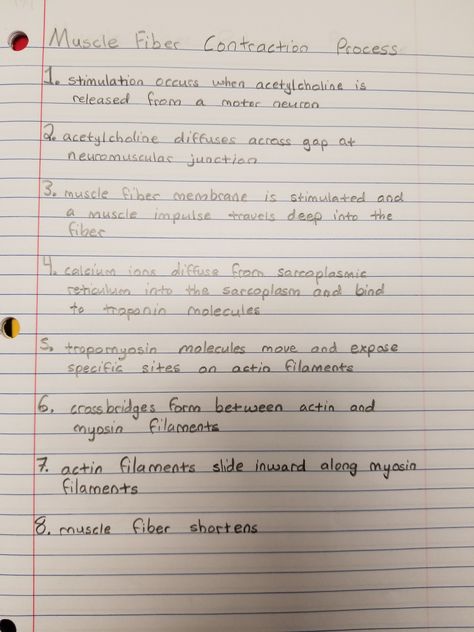 Muscle Fiber Contraction Process
1. stimulation occurs when acetylcholine is
released from a motor neuron
2. acetylcholine diffuses across gap at
neuromuscular junction
3. muscle fiber membrane is stimulated and
a muscle impulse travels deep into the
fiber
4. calcium ions diffuse from sarcoplasmic
reticulum into the sarcoplasm and bind
to troponin molecules
5. tropomyosin molecules move and expose
specific sites on actin filaments
6. crossbridges form between actin and
myosin filaments
7. actin filaments slide inward along myosin
filaments
8. muscle fiber shortens